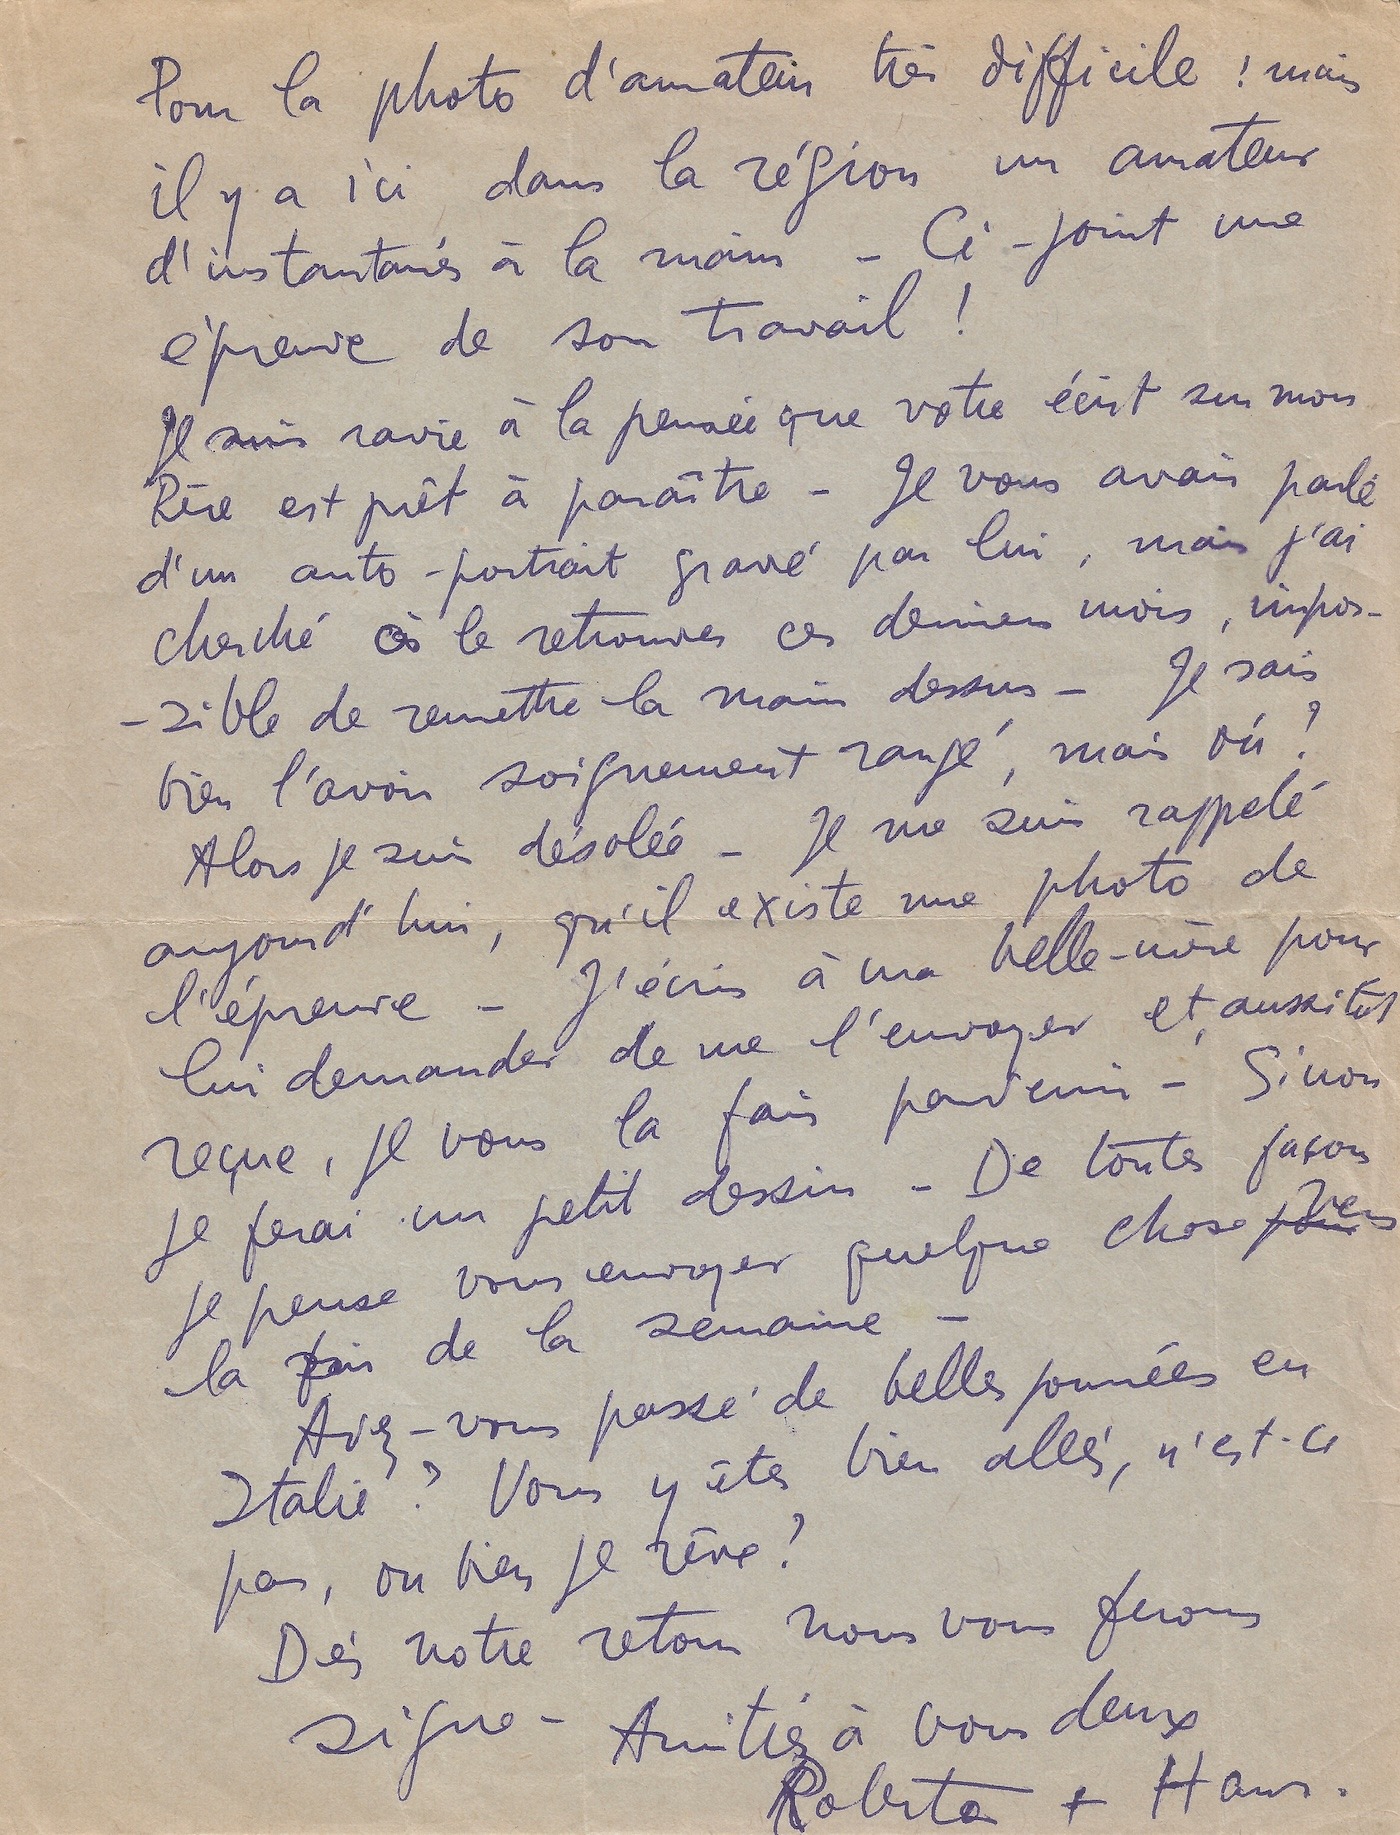 Pour la photo d'amateur très difficile ! mais
il y a ici dans la région un amateur
d'instantanés à la main - Ci-joint une
épreuve de son travail !
Je suis ravie à la pensée que votre écrit sur mon
Père est prêt à paraître - Je vous avais parlé
d'un auto-portrait gravé par lui, mais j'ai
cherché à le retrouver ces derniers mois, impos-
-sible de remettre la main dessus - Je sais
bien l'avoir soignement rangé, mais où ?
Alors je suis désolée - Je me suis rappelé
aujourd'hui, qu'il existe une photo de
l'épreuve - J'écris à ma belle-mère pour
lui demander de me l'envoyer et, aussitôt
reçue, je vous la fais parvenir - Sinon
je ferai un petit dessin - De toutes façons
je pense vous envoyer quelque chose pour vers
la fin de la semaine -
Avez-vous passé de belles journées en
Italie ? Vous y êtes bien allés, n'est-ce
pas, ou bien je rêve ?
Dès notre retour nous vous ferons
signe - Amitiés à vous deux
Roberta + Hans.